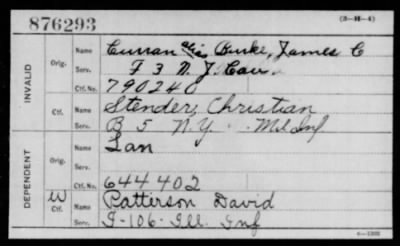 876293
(3-H-4)
INVALID
Orig. Name Curran alias Burke, James C
Serv. F 3 N. J. Cav
Ctf. No. 790240
Ctf. Name Stender, Christian
Serv. B 5 N.Y. Inf
DEPENDENT
Orig. Name
Serv.
Ctf. No. 644402
W
Ctf. Name Patterson David
Serv. I-106-Ill. Inf